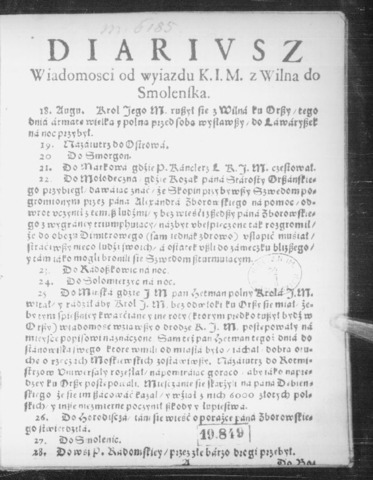 m-6185
DIARIVSZ
Wiadomosci od wyiazdu K. I. M. z Wilna do
Smoleńska.
18. Augu. Krol Jego M. ruszył sie z Wilna ku Orszy / tego
dnia armatę wielką y polną przed sobą wysławszy / do Ławaryszek
na noc przybył.
19. Nazaiutrz do Ostrowa.
20 Do Smorgon.
21. Do Markowa gdzie P. Kanclerz L K. J. M. częstował.
22. Do Mołodeczna gdzie Kozak pana Starosty Orszańskie-
go przybiegł dawaiąc znać / że Skopin przybywszy Szwedom po-
gromionym przez pána Alexandrá Zborowskiego na pomoc / ob-
wiot uczynił z tem. ß ludźmi / y bez wieści zszedszy pána Zborowskie-
go z wygraney tryumphuiącego / názbyt ubeśpieczone tak rozgromił /
że do obozu Dimitrowego (sam iednak zdrowo) ustąpić musiał /
straciwszy nieco ludzi swoich / a ostatek wszli do zameczku bliższego /
y tam iako mogli bronili sie Szwedom szturmuiącym.
23. Do Radoszkowic na noc.
24. Do Sołomierzyc na noc.
25 Do Mińska gdzie J M pan Hetman polny Krola J. M.
witał / y radził aby Krol J. M. bez odwłoki ku Orszy sie miał / że
by tem spieszniey kwarciane y ine roty (ktorym prędko tuszył bydź w
Orszy) wiadomość wziąwszy o drodze K. J. M. postępowały na
mieysce popisowi naznaczone Sam też pan Hetman tegoż dnia do
stanowiska swego ktore w mili od miasta było / iachał / dobrą otu-
chę o rzeczach Moskiewskich zostawiwszy. Nazaiutrz do Rotmi-
strzow Vniwersały rozesłał / napominaiąc gorąco / aby iako naprę-
dzey ku Orszy pospieszali. Mieszczanie sie skarżyli na pana Dębiń-
skiego że im ß kazał / y wziął z nich 6000 złotych pol-
skich / y insze niezmierne poczynił szkody y łupiestwa.
26. Do Horodiszcza: tam sie wieść o porażce pana Zborowskie-
go stwierdziła.
19.849
27. Do Smolenic.
28. Do wsi P. Radomskiey / przez złe barzo drogi przybył.
A Do Bor